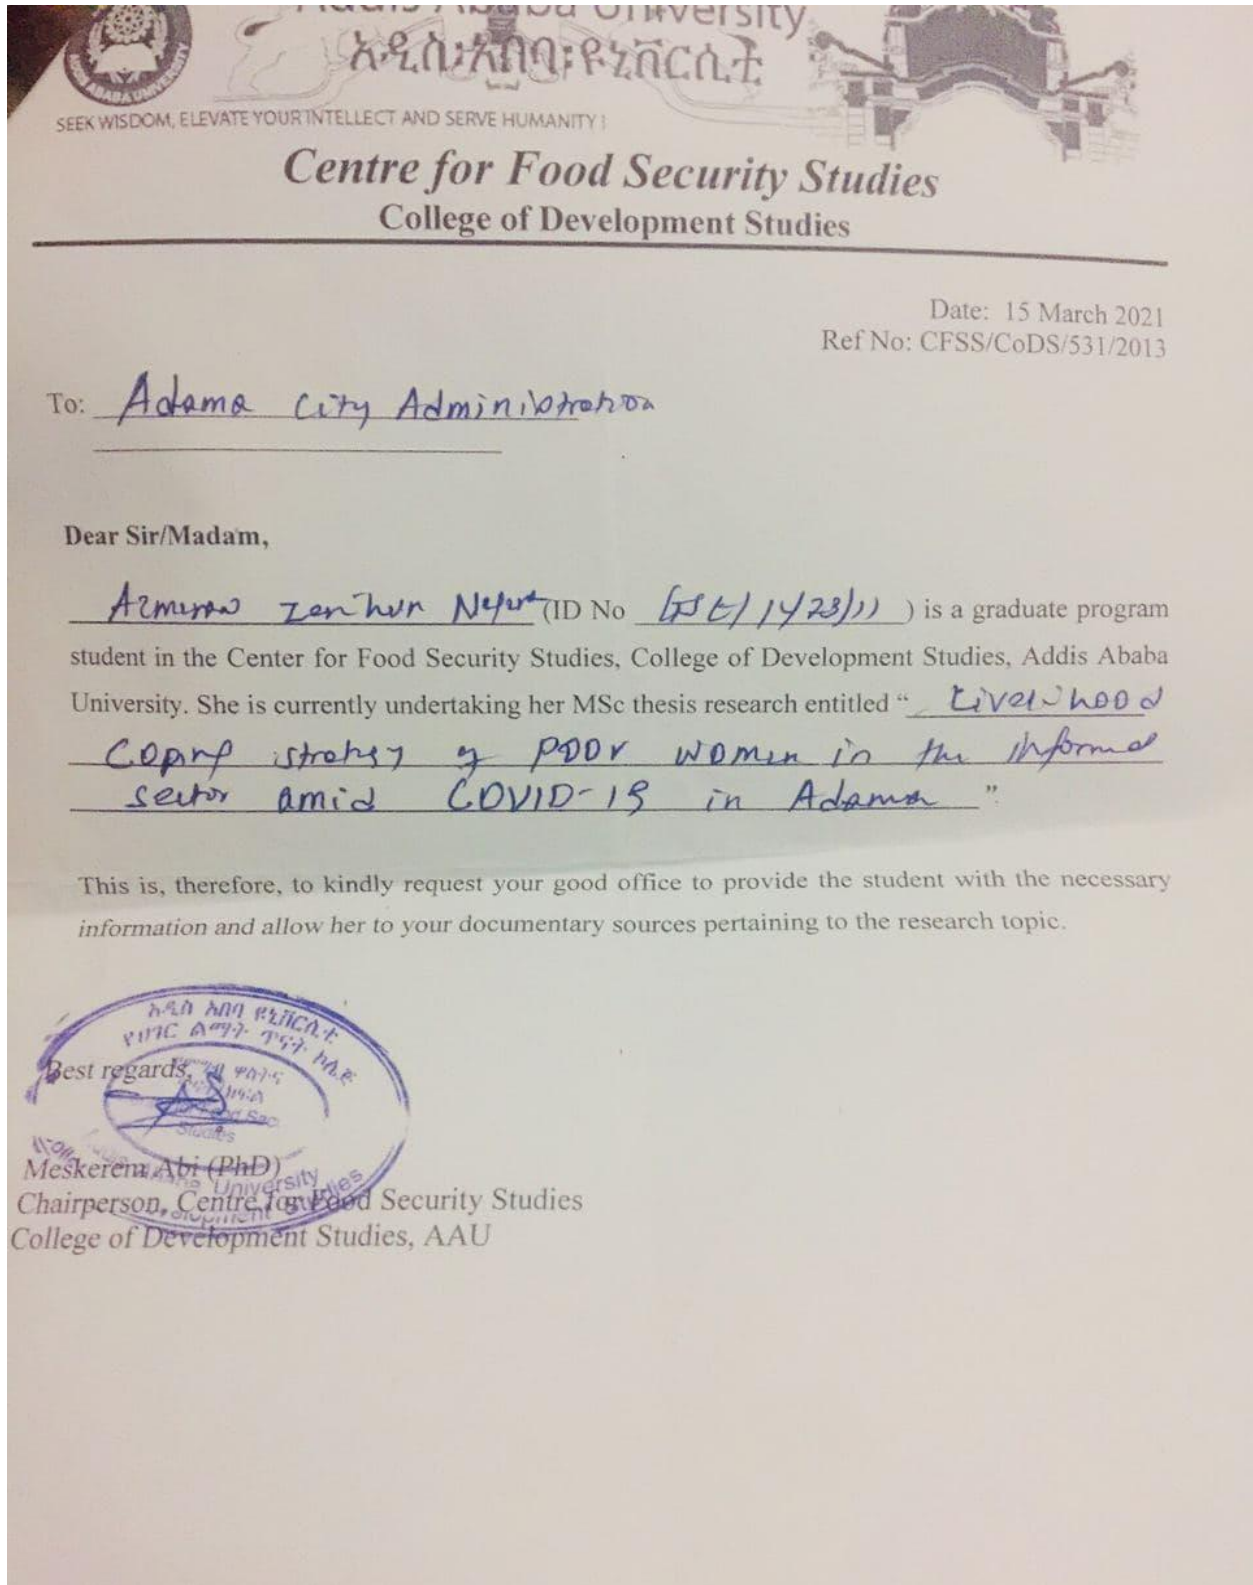 Addis Ababa University
አዲስ፡አበባ፡ዩኒቨርሲቲ
ABABA UNIVERSITY
SEEK WISDOM, ELEVATE YOUR INTELLECT AND SERVE HUMANITY !
Centre for Food Security Studies
College of Development Studies
Date: 15 March 2021
Ref No: CFSS/CoDS/531/2013
To: Adama City Administration
Dear Sir/Madam,
(ID No ) is a graduate program
student in the Center for Food Security Studies, College of Development Studies, Addis Ababa
University. She is currently undertaking her MSc thesis research entitled “ Livelihood
Coping strategy of poor women in the informal
sector amid COVID-19 in Adama ”.
This is, therefore, to kindly request your good office to provide the student with the necessary
information and allow her to your documentary sources pertaining to the research topic.
አዲስ አበባ ዩኒቨርሲቲ
የሀገር ልማት ጥናት ኮሌጅ
Best regards,
Studies
Meskerem Abi (PhD)
University
Chairperson, Centre for Food Security Studies
College of Development Studies, AAU